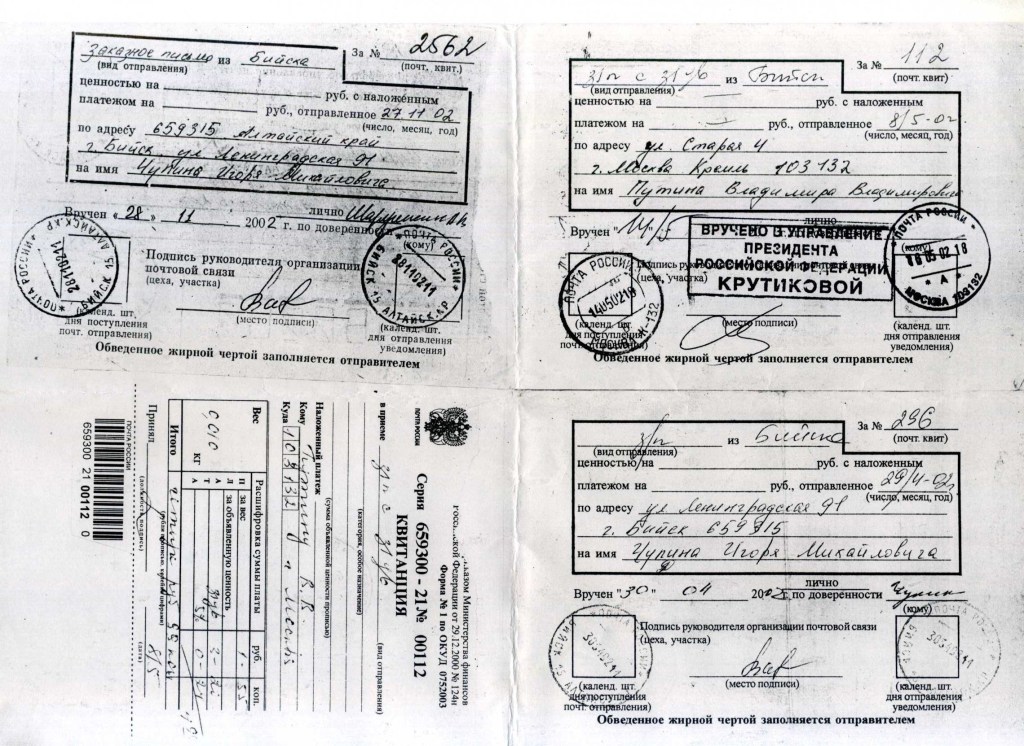 Заказное письмо из Бийска За № 2562
(вид отправления) (почт. квит.)
ценностью на руб. с наложенным
платежом на руб., отправленное 27 11 02
(число, месяц, год)
по адресу 659315 Алтайский край
г. Бийск ул Ленинградская 91
на имя Чупина Игоря Михайловича
Вручен «28» 11 2002 г. по доверенности
лично
(кому)
Подпись руководителя организации
почтовой связи
(цеха, участка)
(место подписи)
(календ. шт.
дня поступления
почт. отправления)
(календ. шт.
дня отправления
уведомления)
Обведенное жирной чертой заполняется отправителем
ПОЧТА РОССИИ
АЛТАЙСК.КР
БИЙСК 15
2811021
ПОЧТА РОССИИ
БИЙСК 15 АЛТАЙСК.КР
28110211
з/п с з/ув из Бийск За № 112
(вид отправления) (почт. квит)
ценностью на руб. с наложенным
платежом на руб., отправленное 8/5-02
(число, месяц, год)
по адресу ул. Старая 4
г. Москва Кремль 103132
на имя Путина Владимира Владимировича
лично
Вручен 14/5
ВРУЧЕНО В УПРАВЛЕНИЕ
ПРЕЗИДЕНТА
РОССИЙСКОЙ ФЕДЕРАЦИИ
КРУТИКОВОЙ
(кому)
Подпись
(цеха, участка)
(место подписи)
(календ. шт.
дня поступления
почт. отправления)
(календ. шт.
дня отправления
уведомления)
Обведенное жирной чертой заполняется отправителем
ПОЧТА РОССИИ
14050218
ПОЧТА РОССИИ
16 05 02 18
* А *
МОСКВА 103132
ПОЧТА РОССИИ
приказом Министерства финансов
Российской Федерации от 29.12.2000 № 124н
Форма № 1 по ОКУД 0752003
Серия 659300 - 21 № 00112
КВИТАНЦИЯ
в приеме з/п с з/ув
(вид отправления)
(категория, особое назначение)
(сумма объявленной ценности прописью)
Наложенный платеж
Кому Путину В.В.
Куда 103132 г Москва
Вес
КГ
Расшифровка суммы платы
руб. коп.
П за вес 1- 55
Л за объявленную ценность
А
Т
А
Итого
(рубли прописью, копейки цифрами)
Принял 8/5
(должность, подпись)
ПОЧТА РОССИИ
659300 21 00112 0
з/п из Бийска За № 296
(вид отправления) (почт. квит)
ценностью на руб. с наложенным
платежом на руб., отправленное 29/4-02г
(число, месяц, год)
по адресу ул Ленинградская 91
г. Бийск 659315
на имя Чупина Игоря Михайловича
лично
Вручен "30" 04 2002 по доверенности Чупин
(кому)
Подпись руководителя организации почтовой связи
(цеха, участка)
(место подписи)
(календ. шт.
дня поступления
почт. отправления)
(календ. шт.
дня отправления
уведомления)
Обведенное жирной чертой заполняется отправителем